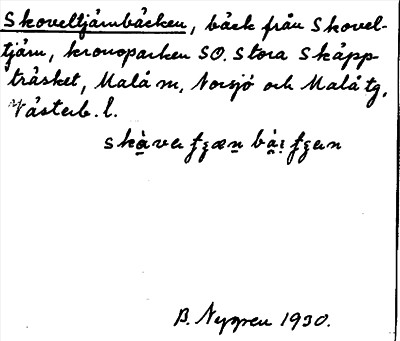 Skoveltjärnbäcken, bäck från Skovel-
tjärn, kronoparken SO. Stora Skäpp-
träsket, Malå sn, Norsjö och Malå tg,
Västerb. l.
B. Nygren 1930.